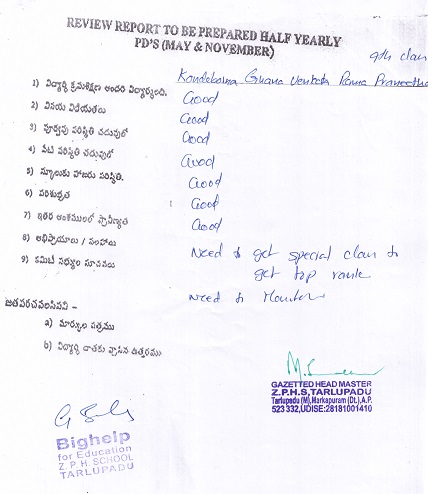 REVIEW REPORT TO BE PREPARED HALF YEARLY
PD'S (MAY & NOVEMBER)
9th class
1) విద్యార్థి క్రమశిక్షణ అందరి విద్యార్థులది. Kondeboina Gnana Venkata Rama Praneetha
Good
2) వినయ విధేయతలు Good
3) పూర్వపు పరిస్థితి చదువులో Good
4) నేటి పరిస్థితి చదువులో Good
5) స్కూలుకు హాజరు పరిస్థితి. Good
6) పరిశుభ్రత Good
7) ఇతర అంశములలో ప్రావీణ్యత Good
8) అభిప్రాయాలు / సలహాలు Need to get special class to
get top rank
9) కమిటీ సభ్యుల సూచనలు Need to Monitor
జతపరచవలసినవి –
a) మార్కుల పత్రము
b) విద్యార్థి దాతకు వ్రాసిన ఉత్తరము
GAZETTED HEAD MASTER
Z.P.H.S, TARLUPADU
Tarlupadu (M), Markapuram (Dt.), A.P.
523 332, UDISE:28181001410
Bighelp
for Education
Z.P.H. SCHOOL
TARLUPADU